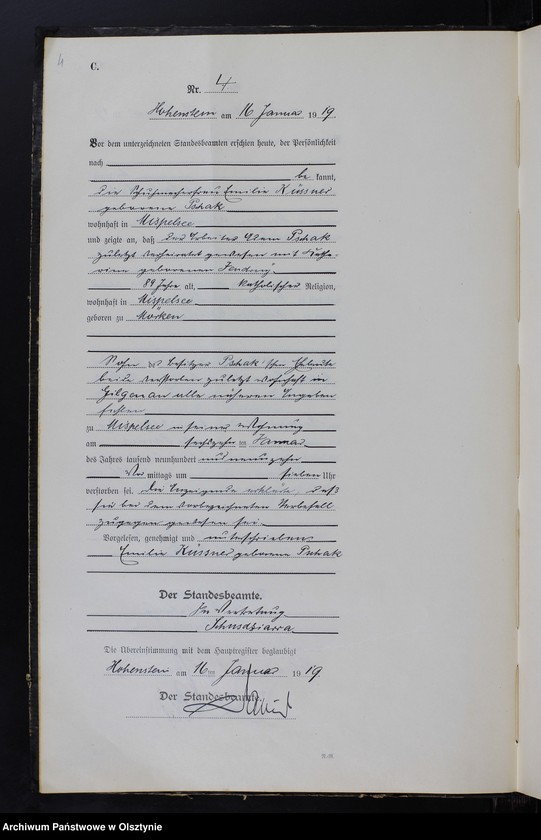 4
C.
Nr. 4
Hohenstein am 16 Januar 1919.
Vor dem unterzeichneten Standesbeamten erschien heute, der Persönlichkeit
nach
be kannt,
die Schuhmacherfrau Emilie Küssner
geborene Pschak
wohnhaft in Mispelsee
und zeigte an, daß der Arbeiter Adam Pschak
zuletzt verheiratet gewesen mit Katha-
rine geborenen
89 Jahre alt, katholischer Religion,
wohnhaft in Mispelsee
geboren zu Mörken
Sohn der Besitzer Pschak'schen Eheleute
beide verstorben zuletzt wohnhaft in
Gilgenau alle näheren Angaben
fehlen
zu Mispelsee in seiner Wohnung
am sechszehn ten Januar
des Jahres tausend neunhundert und neunzehn
Vor mittags um sieben Uhr
verstorben sei. Die Anzeigende erklärte, daß
sie bei dem vorbezeichneten Sterbefall
zugegen gewesen sei.
Vorgelesen, genehmigt und unterschrieben
Emilie Küssner geborene Pschak
Der Standesbeamte.
In Vertretung
Die Übereinstimmung mit dem Hauptregister beglaubigt
Hohenstein am 16ten Januar 1919
Der Standesbeamte.
Archiwum Państwowe w Olsztynie